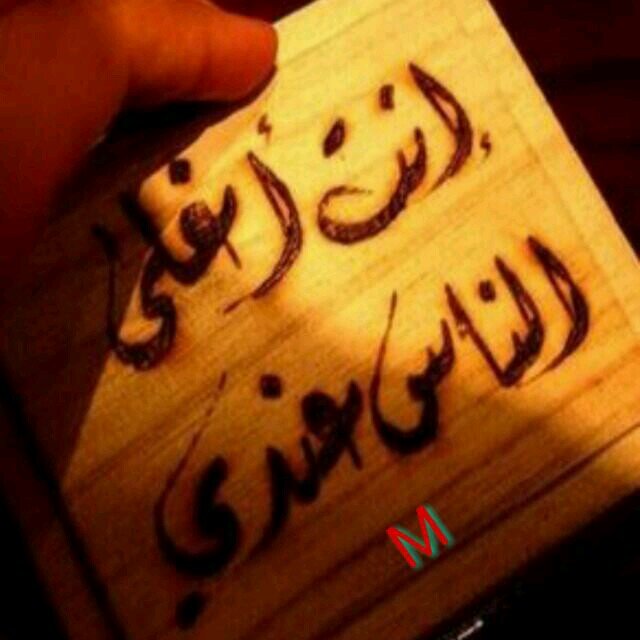 إنت أغلى
الناس عندي
M